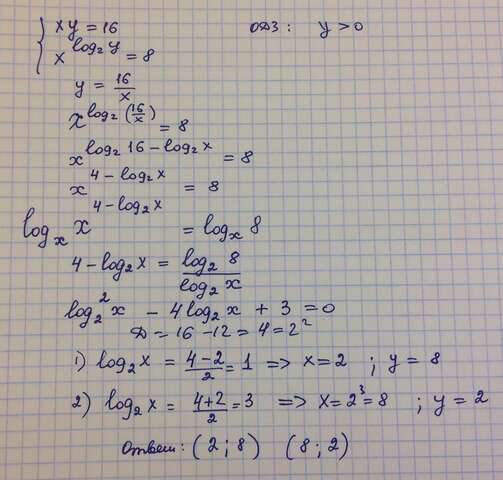 { xy = 16 ОДЗ: y > 0
x^(log₂ y) = 8
y = 16/x
x^(log₂ (16/x)) = 8
x^(log₂ 16 - log₂ x) = 8
x^(4 - log₂ x) = 8
log_x x^(4 - log₂ x) = log_x 8
4 - log₂ x = log₂ 8 / log₂ x
log₂² x - 4 log₂ x + 3 = 0
Д = 16 - 12 = 4 = 2²
1) log₂ x = (4-2)/2 = 1 => x = 2 ; y = 8
2) log₂ x = (4+2)/2 = 3 => x = 2³ = 8 ; y = 2
Ответ: (2; 8) (8; 2)